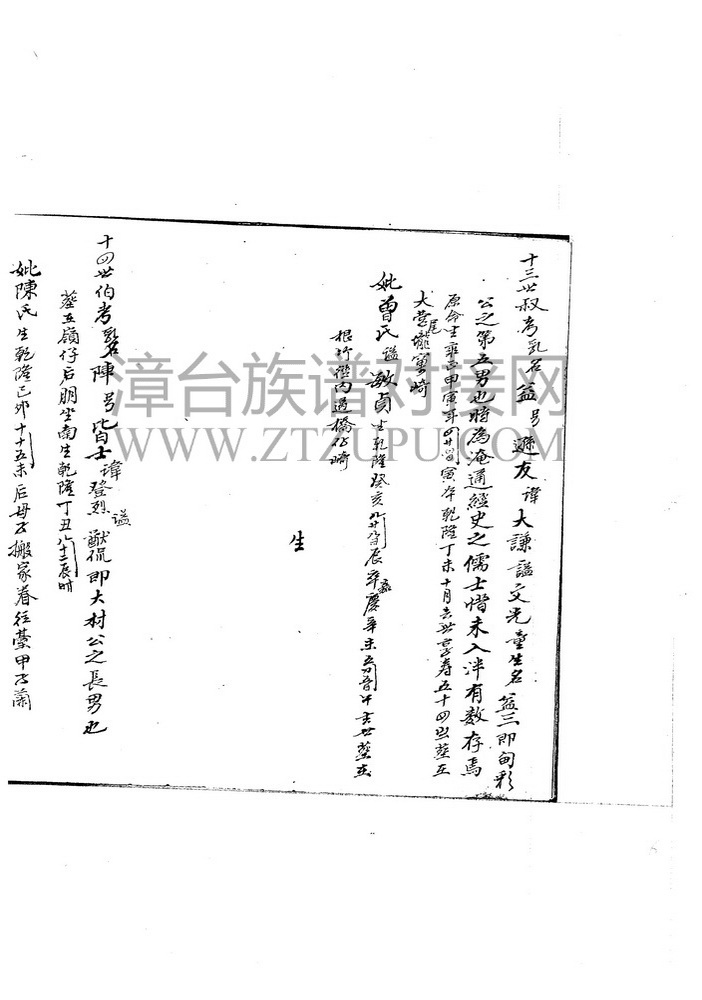 十三世叔考乳名益号遜友諱大謙謚文光童生名益三即甸彩
公之第五男也時為淹通經史之儒士惜未入泮有数存焉
原命生雍正甲寅年四廿 寅卒乾隆丁未十月去世享寿五十四 塟在
大営尾
妣曾氏謚敏貞生乾隆癸亥八廿 辰卒嘉慶辛未五 去世塟在
根竹 内過橋仔崎
生
十四世伯考乳名陣号比士諱登烈謚猷侃即大村公之長男也
塟在嶺仔后朋坐南生乾隆丁丑八十二辰時
妣陳氏生乾隆己卯十十五未后母子搬家眷往臺甲子蘭
漳台族谱对接网
WWW.ZTZUPU.COM